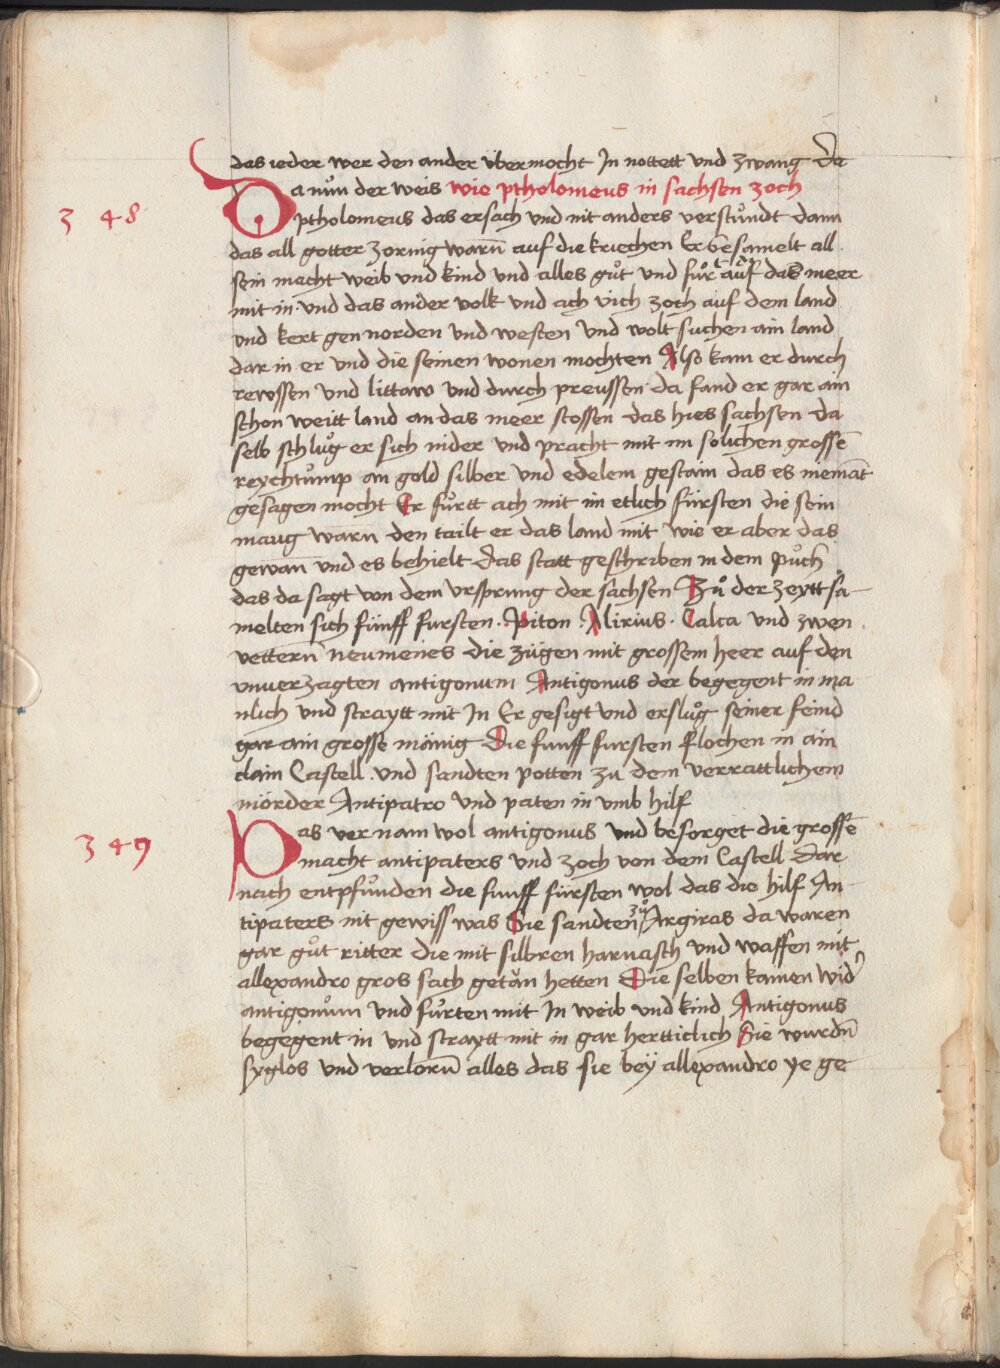 das ieder wer den ander übermocht In nottett und zwang Da
Da nům der weis wie ptholomeus in sachsen zoch
3 48
ptholomeus das ersach und nit anders verstůndt dann
das all gotter zornig warn̄ auf die kriechen Er besamelt all
sein macht weib und kind und alles gůt und fůr auf das meer
mit in und das ander volk und ach vich zoch auf dem land
und kert gen norden und westen und wolt suchen ain land
dar in er und die seinen wonen mochten Also kam er durch
rewssen und littaw und durch preussen da fand er gar ain
schon weitt land an das meer stossen das hies sachsen da
selb schlůg er sich nider und pracht mit im solichen grossē
reychtůmp an gold silber und edelem gestain das es niemāt
gesagen mocht Er fůrtt ach mit im etlich fürsten die sein
maug warn den tailt er das land mit wie er aber das
gewan̄ und es behielt das statt geschriben in dem půch
das da sagt von dem ursprung der sachsen Zů der zeytt sa
melten sich fünff fursten. Piton Alirius. Calca und zwen
vettern̄ neumenes die zügen mit grossem heer auf den
unverzagten antigonum Antigonus der begegent in ma
nlich und straytt mit In Er gesigt und erslůg seiner feind
gar ain grosse mänig Die funff fursten flochen in ain
clain Castell und sandten potten zu dem verrattlichem
mörder Antipatro und paten in umb hilf
349
Das ver nam wol antigonus und besorget die grossē
macht antipaters und zoch von dem Castell Dar
nach entpfůnden die funff fürsten wol das die hilf An
tipaters nit gewiss was Sie sandten zů Argiras da waren
gar gůt ritter die mit silbren harnasch und waffen mit
allexandro gros sach getăn hetten Die selben kamen wid'
antigonům und fůrten mit In weib und kind Antigonus
begegent in und straytt mit in gar hertticlich Sie wurdn̄
syglos und verlorn̄ alles das sie beÿ allexandro ye ge